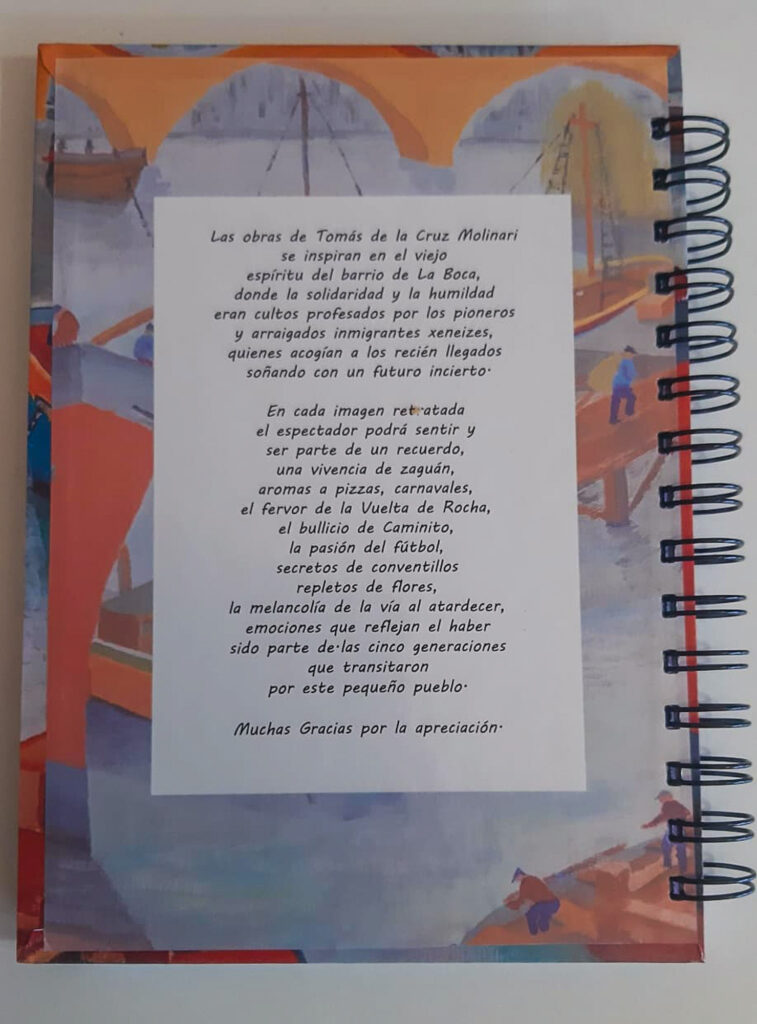 Las obras de Tomás de la Cruz Molinari
se inspiran en el viejo
espíritu del barrio de La Boca,
donde la solidaridad y la humildad
eran cultos profesados por los pioneros
y arraigados inmigrantes xeneizes,
quienes acogían a los recién llegados
soñando con un futuro incierto.
En cada imagen retratada
el espectador podrá sentir y
ser parte de un recuerdo,
una vivencia de zaguán,
aromas a pizzas, carnavales,
el fervor de la Vuelta de Rocha,
el bullicio de Caminito,
la pasión del fútbol,
secretos de conventillos
repletos de flores,
la melancolía de la vía al atardecer,
emociones que reflejan el haber
sido parte de las cinco generaciones
que transitaron
por este pequeño pueblo.
Muchas Gracias por la apreciación.